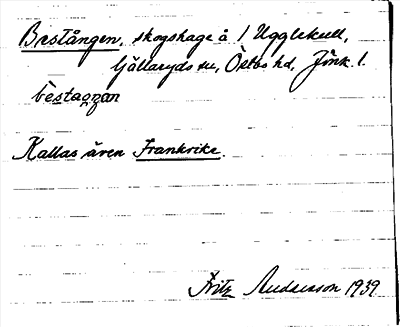 Bestången, skogshage å 1 Ugglekull,
Tjällaryds sn, Östbo hd, Jönk. l.
bestaŋŋan
Kallas även Frankrike.
Fritz Andersson 1939